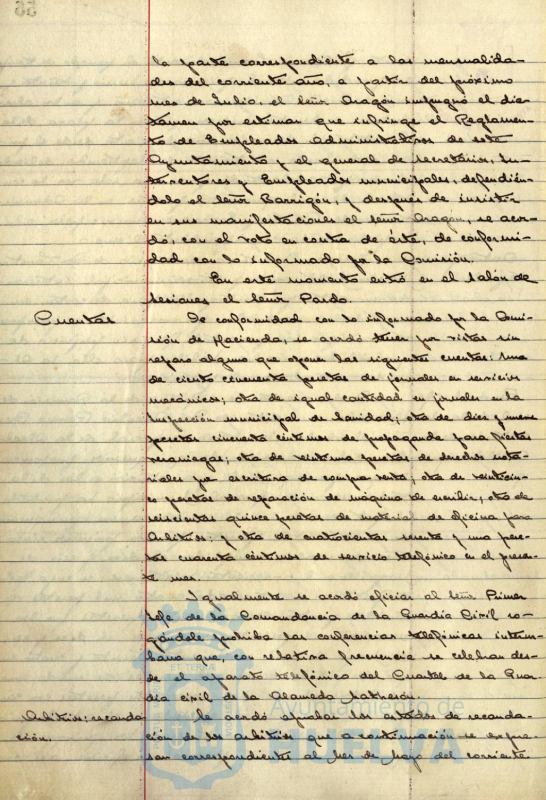 56
la parte correspondiente a las mensualida-
des del corriente año, a partir del próximo
mes de Julio, el Señor Aragón impugnó el dic-
tamen por estimar que infringe el Reglamen-
to de Empleados Administrativos de este
Ayuntamiento y el general de Secretarios, In-
terventores y Empleados municipales, defendién-
dolo el Señor Barrigón, y después de insistir
en sus manifestaciones el Señor Aragón, se acor-
dó, con el voto en contra de éste, de conformi-
dad con lo informado por la Comisión.
En este momento entró en el Salón de
Sesiones el Señor Pardo.
Cuentas
De conformidad con lo informado por la Comi-
sión de Hacienda, se acordó tener por vistas sin
reparo alguno que oponer las siguientes cuentas: Una
de ciento cincuenta pesetas de jornales en servicios
mecánicos; otra de igual cantidad en jornales en la
Inspección municipal de Sanidad; otra de diez y nueve
pesetas cincuenta céntimos de propaganda para fiestas
veraniegas; otra de veintiuna pesetas de derechos nota-
riales por escritura de compra venta; otra de veinticin-
co pesetas de reparación de máquina de escribir; otra de
seiscientas quince pesetas de material de oficina para
Arbitrios; y otra de cuatrocientas sesenta y una pese-
tas cuarenta céntimos de servicio telefónico en el presen-
te mes.
Igualmente se acordó oficiar al Señor Primer
Jefe de la Comandancia de la Guardia Civil ro-
gándole prohiba las conferencias telefónicas interur-
bana que, con relativa frecuencia se celebran des-
de el aparato telefónico del Cuartel de la Guar-
dia civil de la Alameda
Arbitrios: recauda-
ción.
Se acordó aprobar los estados de recauda-
ción de los arbitrios que a continuación se expre-
san correspondientes al mes de Mayo del corriente
Ayuntamiento de
HUELVA